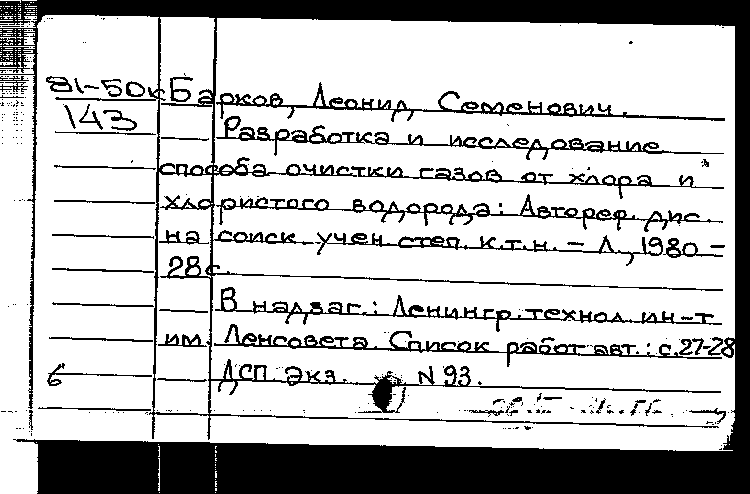 81-50к Барков, Леонид Семенович.
143 Разработка и исследование
способа очистки газов от хлора и
хлористого водорода: Автореф. дис.
на соиск. учен. степ. к.т.н. – Л., 1980 –
28с.
В надзаг.: Ленингр. технол. ин-т
им. Ленсовета. Список работ авт.: с. 27-28
ДСП. Экз. N 93.
6